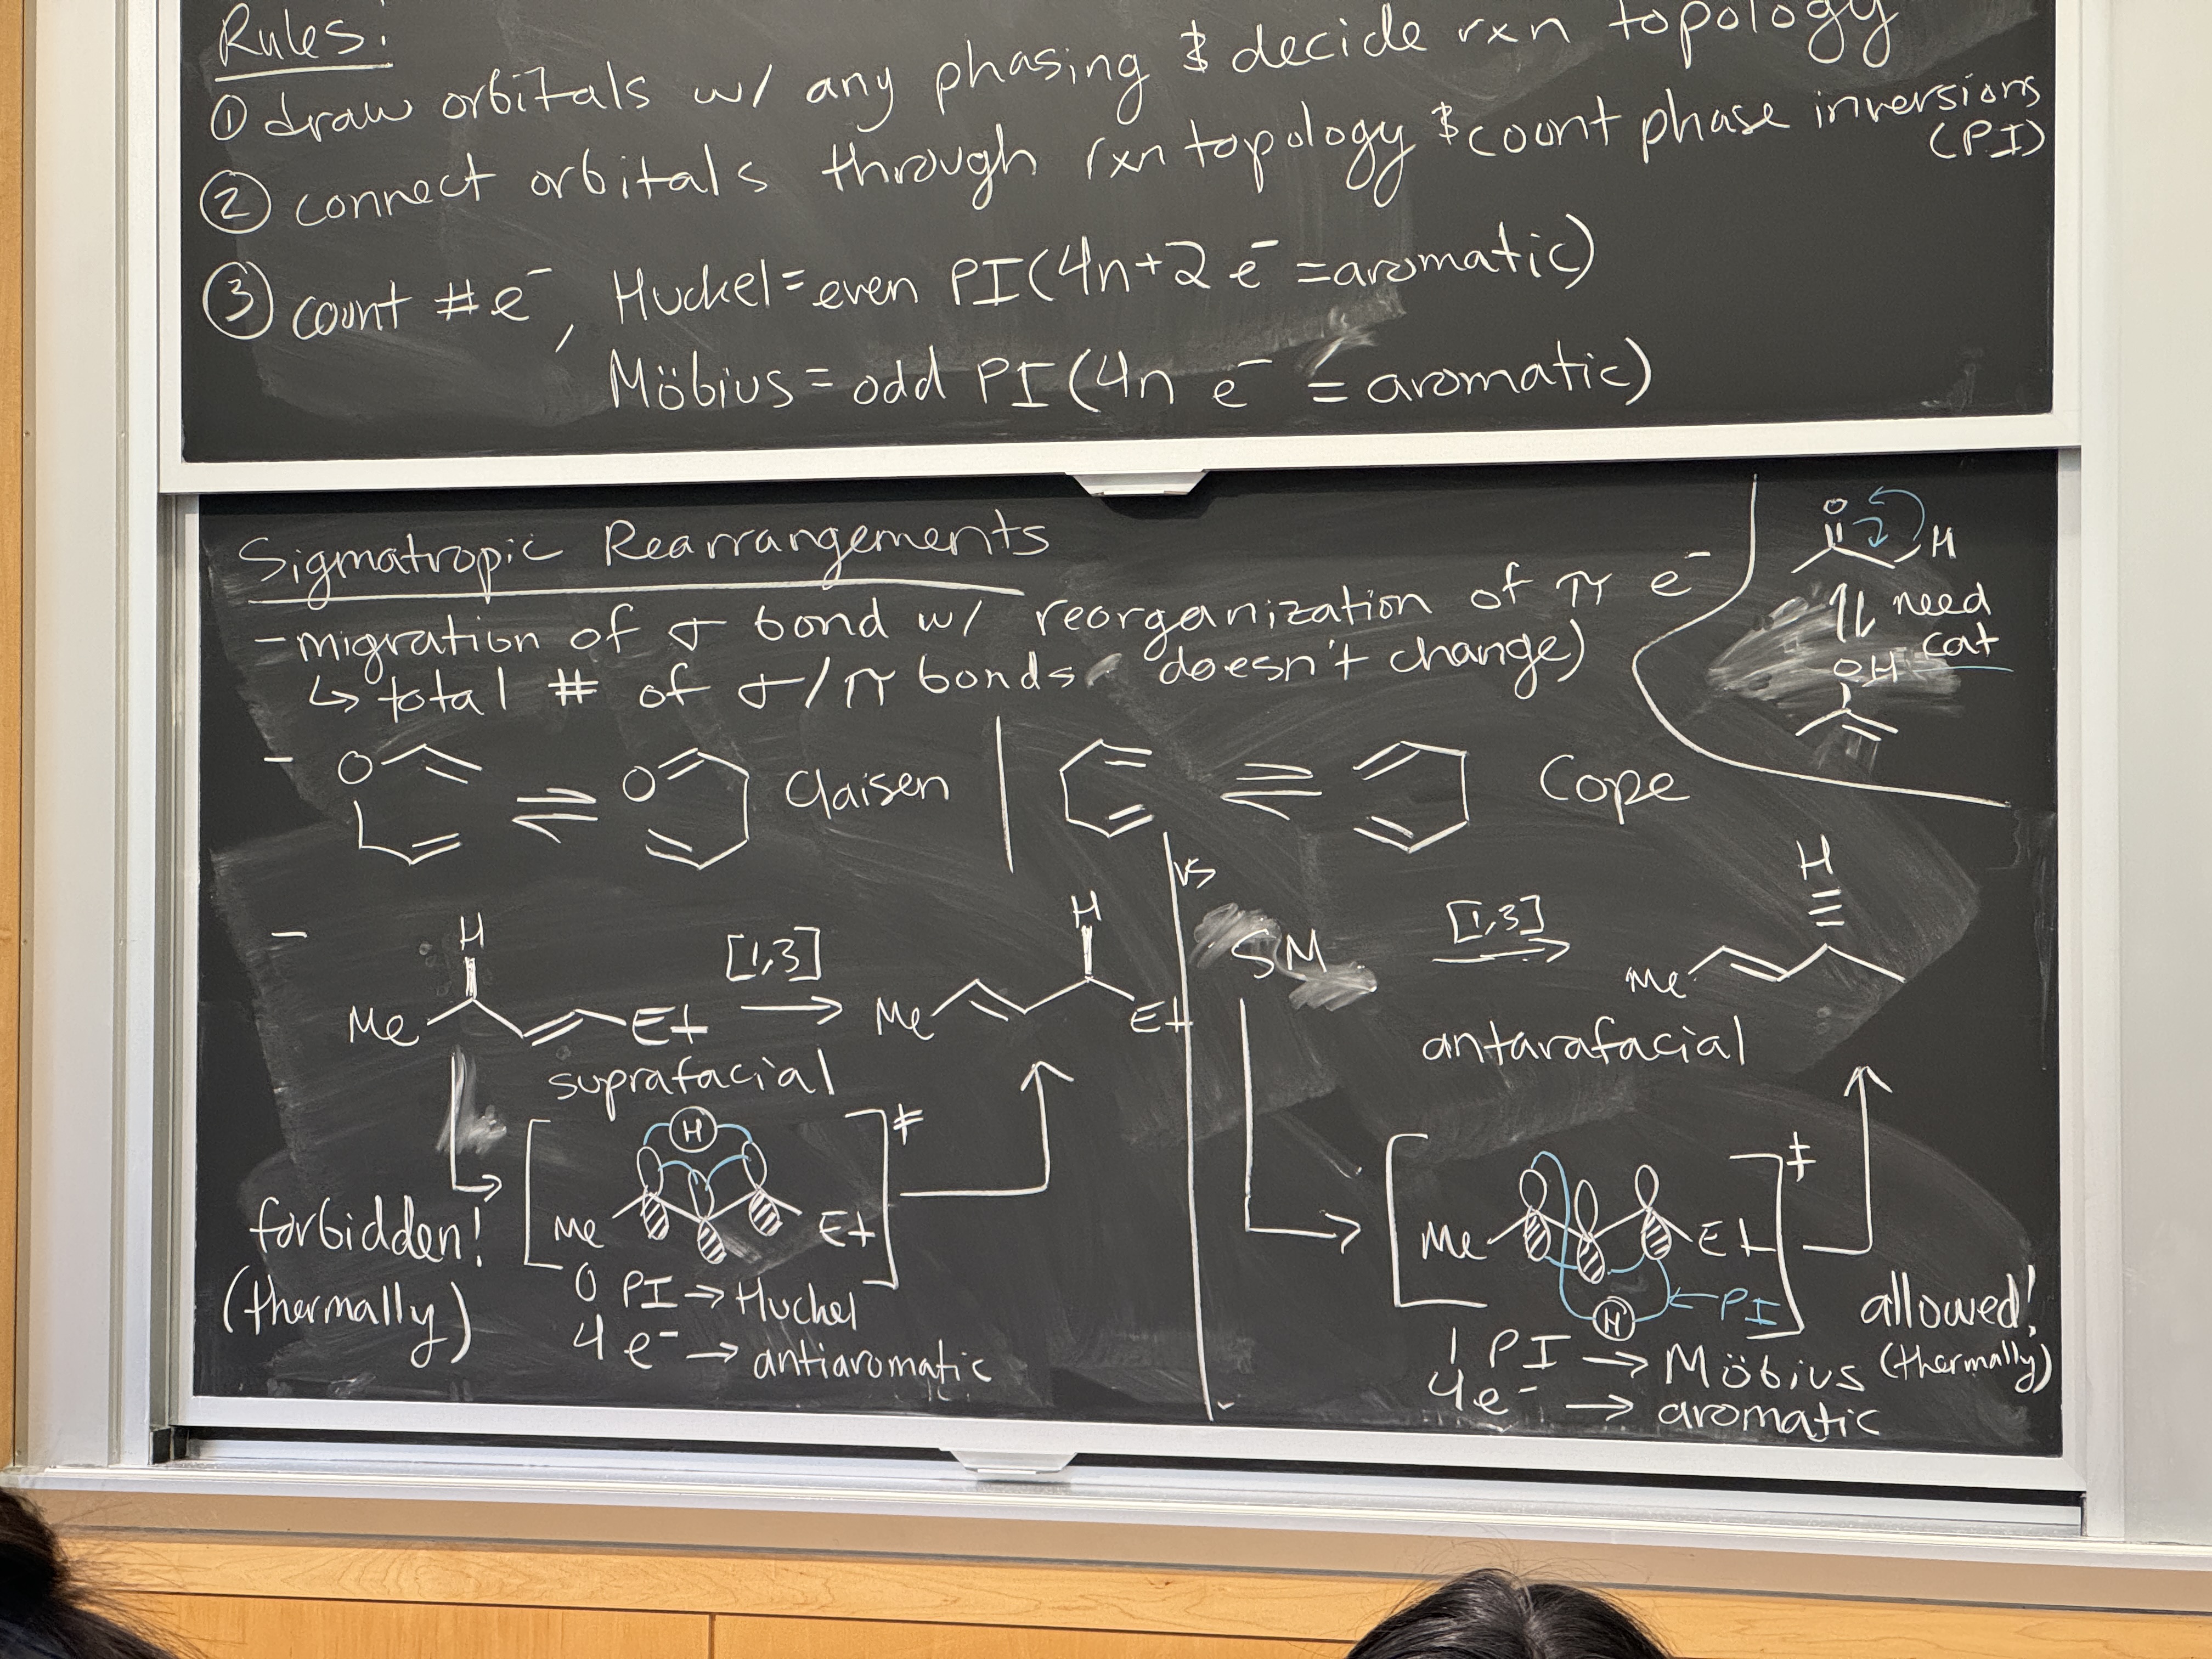 Rules:
① draw orbitals w/ any phasing & decide rxn topology
② connect orbitals through rxn topology & count phase inversions
(PI)
③ count # e⁻, Huckel = even PI (4n+2 e⁻ = aromatic)
Möbius = odd PI (4n e⁻ = aromatic)
Sigmatropic Rearrangements
- migration of σ bond w/ reorganization of π e⁻
↳ total # of σ/π bonds doesn't change)
O
H
⇌ need
cat
OH
- O ⇌ O Claisen
⇌ Cope
- H
Me Et
[1,3]
→
H
Me Et
suprafacial
vs
SM
[1,3]
→
H
Me
antarafacial
forbidden!
(thermally)
H
Me Et ‡
0 PI → Huckel
4 e⁻ → antiaromatic
Me Et ‡
H ← PI
1 PI → Möbius
4e⁻ → aromatic
allowed!
(thermally)